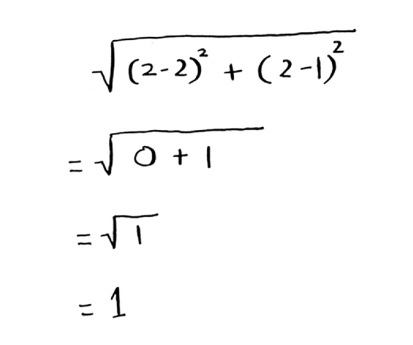 √((2-2)² + (2-1)²)
= √(0 + 1)
= √1
= 1